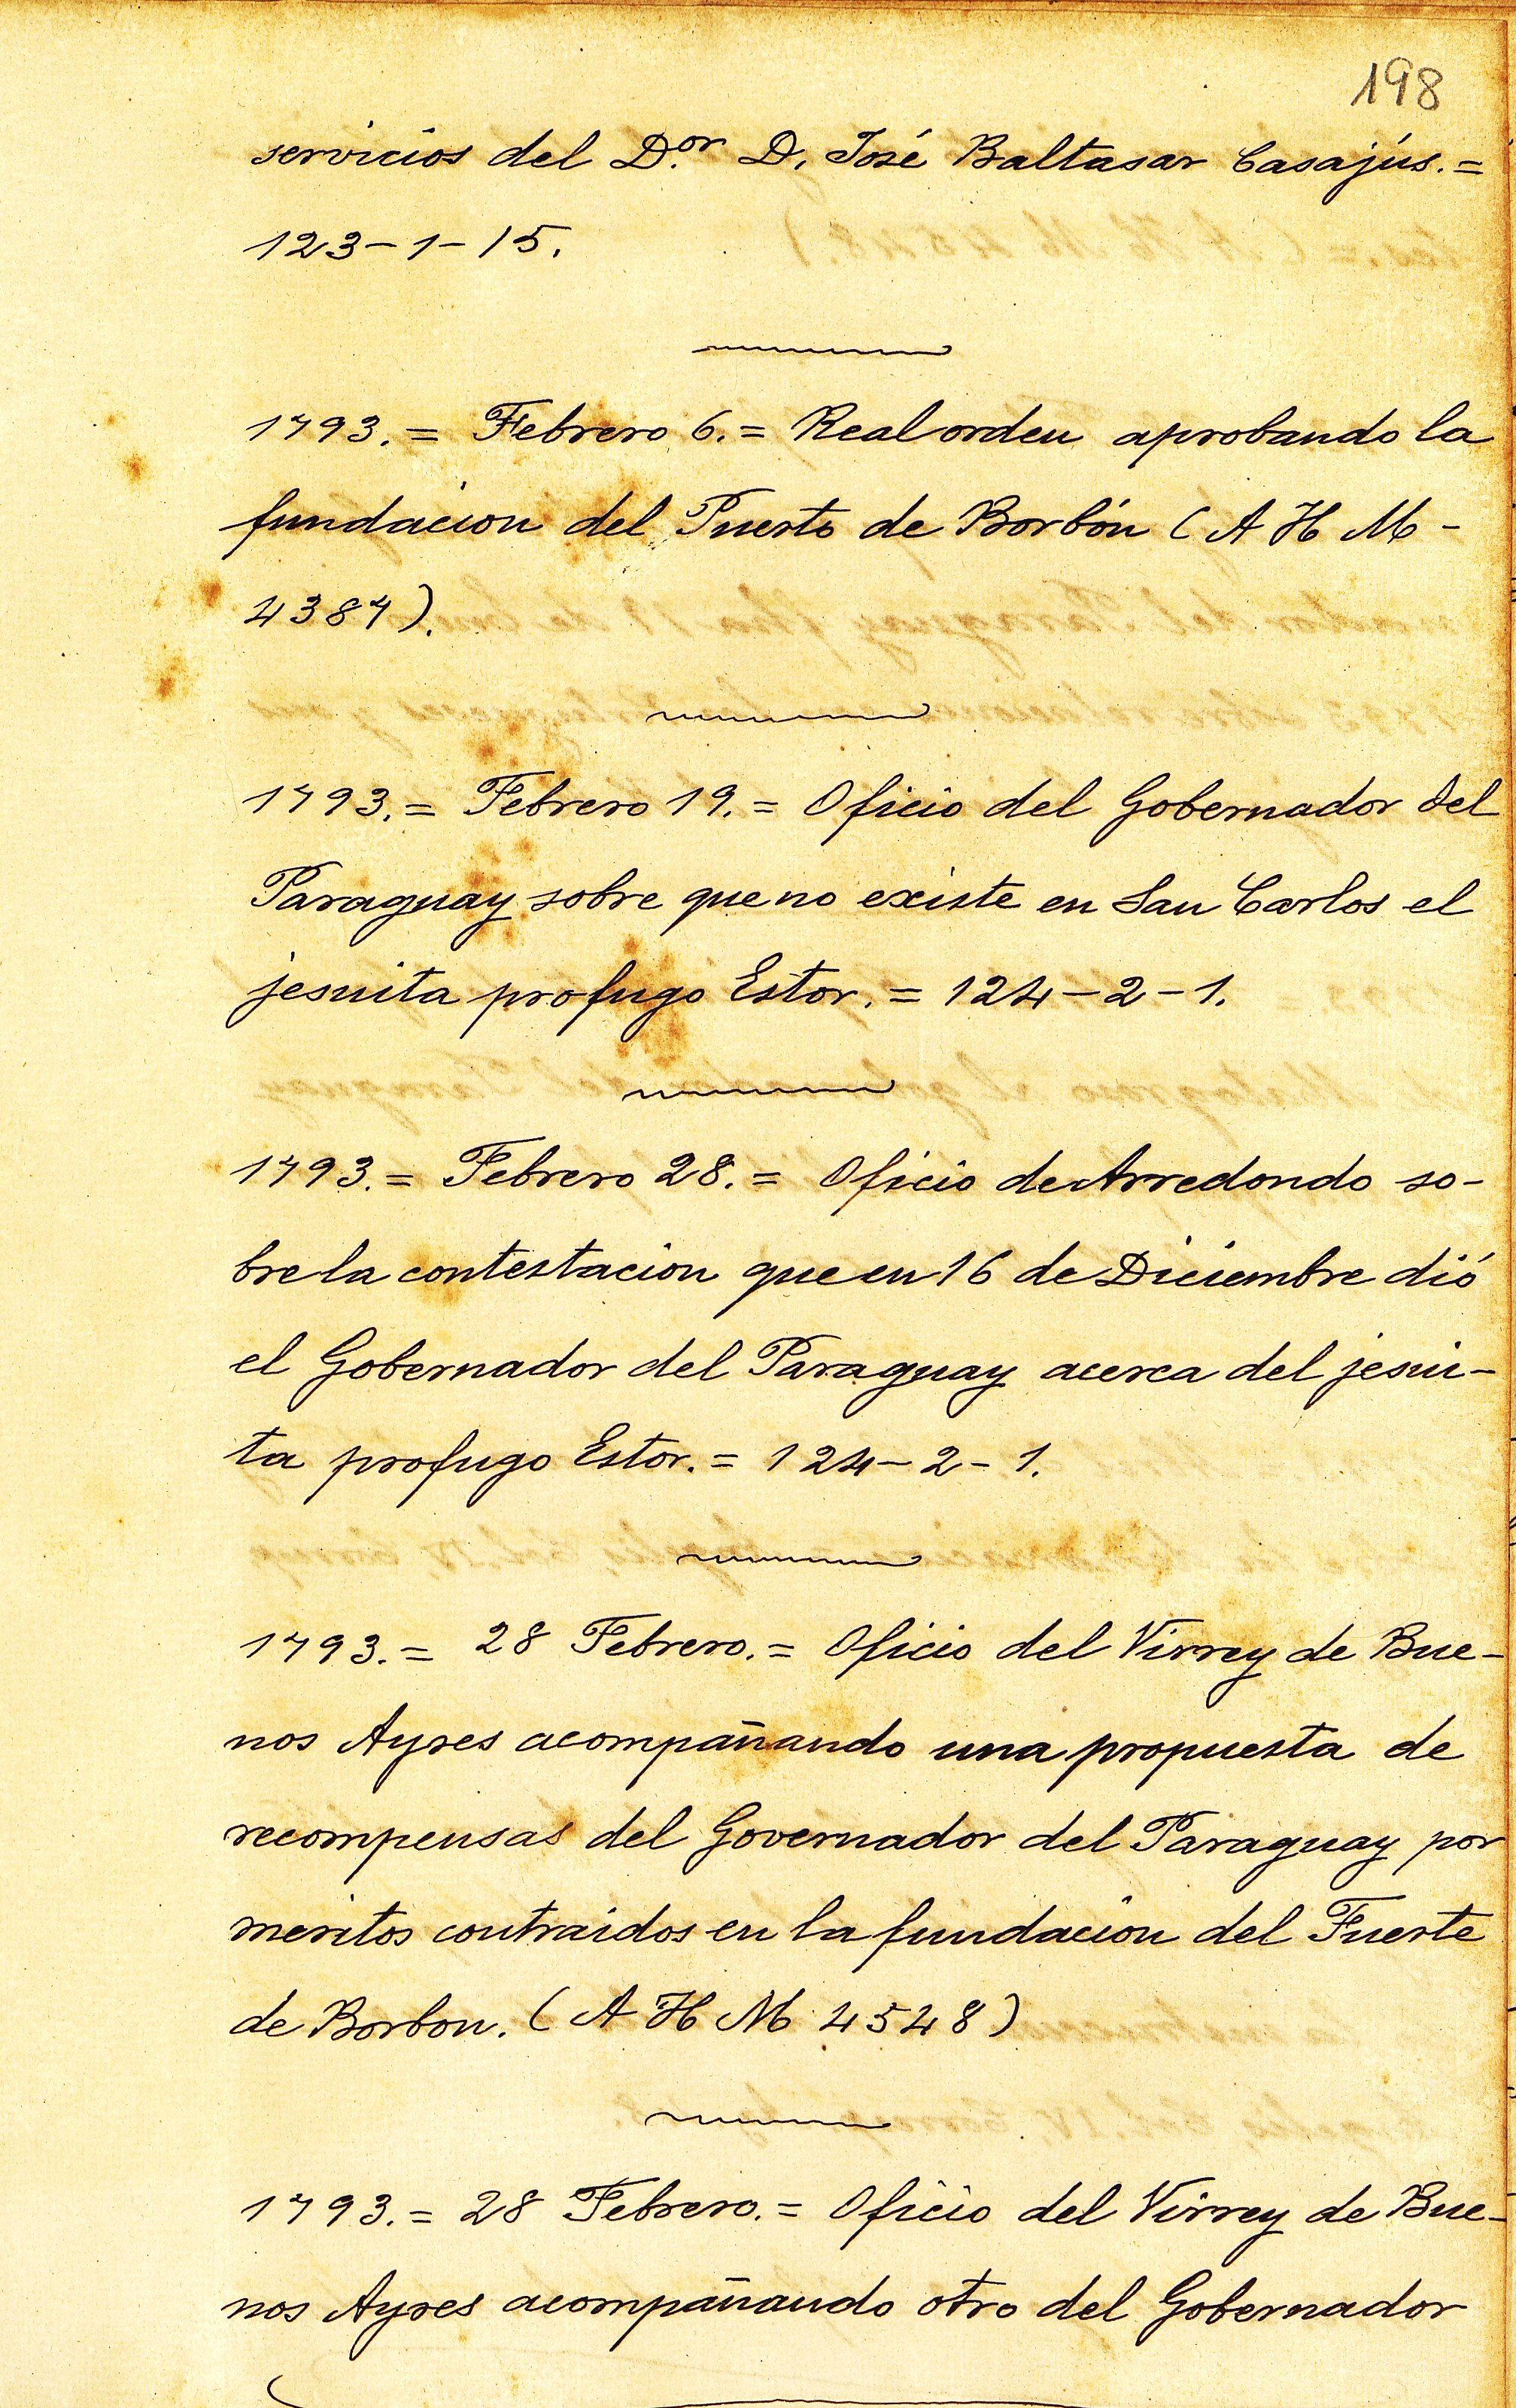 198
servicios del D.or D. José Baltasar Casajús.=
123-1-15.
1793.= Febrero 6.= Real orden aprobando la
fundacion del Puerto de Borbón (A H M -
4387).
1793.= Febrero 19.= Oficio del Gobernador del
Paraguay sobre que no existe en San Carlos el
jesuita profugo Estor.= 124-2-1.
1793.= Febrero 28.= Oficio de Arredondo so-
bre la contestacion que en 16 de Diciembre dió
el Gobernador del Paraguay acerca del jesui-
ta profugo Estor.= 124-2-1.
1793.= 28 Febrero.= Oficio del Virrey de Bue-
nos Ayres acompañando una propuesta de
recompensas del Governador del Paraguay por
meritos contraidos en la fundacion del Fuerte
de Borbon. (A H M 4548)
1793.= 28 Febrero.= Oficio del Virrey de Bue-
nos Ayres acompañando otro del Gobernador